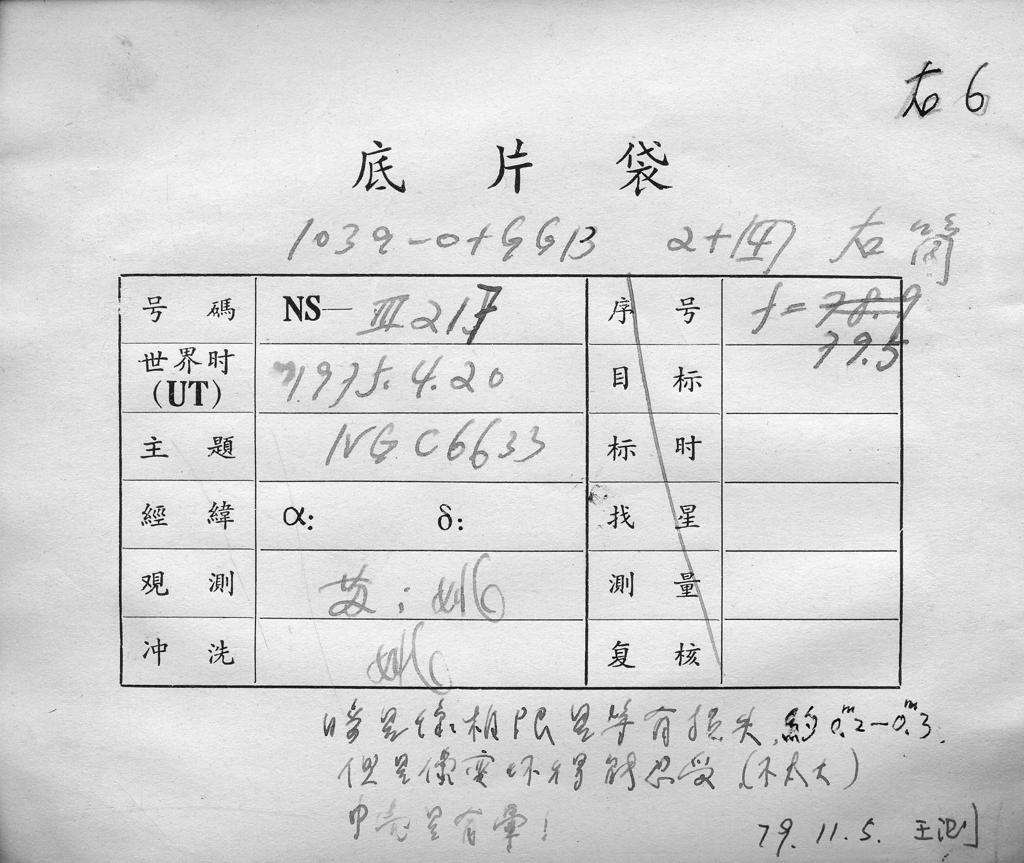 右6
底片袋
103a-O+GG13 2+四 右筒
号碼 NS—III217 序号 f=78.9
79.5
世界时(UT) 1975.4.20 目标
主題 NGC6633 标时
經緯 α: δ: 找星
观測 苏;姚 測量
冲洗 姚 复核
暗星像,极限星等有损失,約0.ᵐ2—0.ᵐ3.
但星像变坏得能忍受(不太大)
中亮星有暈!
79.11.5. 王测